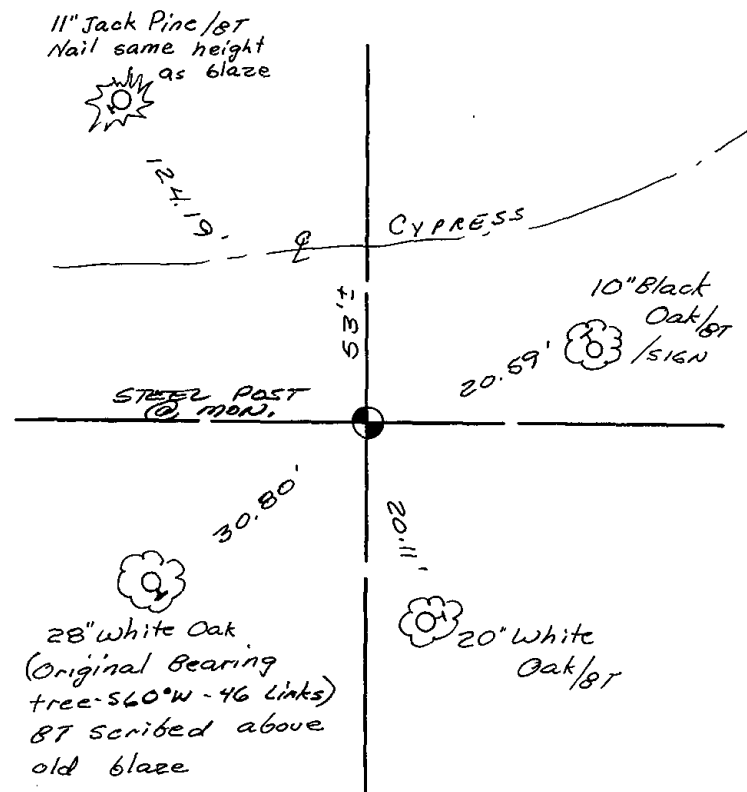 11" Jack Pine/BT
Nail same height
as blaze
124.19'
℄
CYPRESS
53'±
10" Black
Oak/BT
/SIGN
20.59'
STEEL POST
@ MON.
30.80'
20.11'
28" White Oak
(Original Bearing
tree-S60°W-46 Links)
BT scribed above
old blaze
20" White
Oak/BT